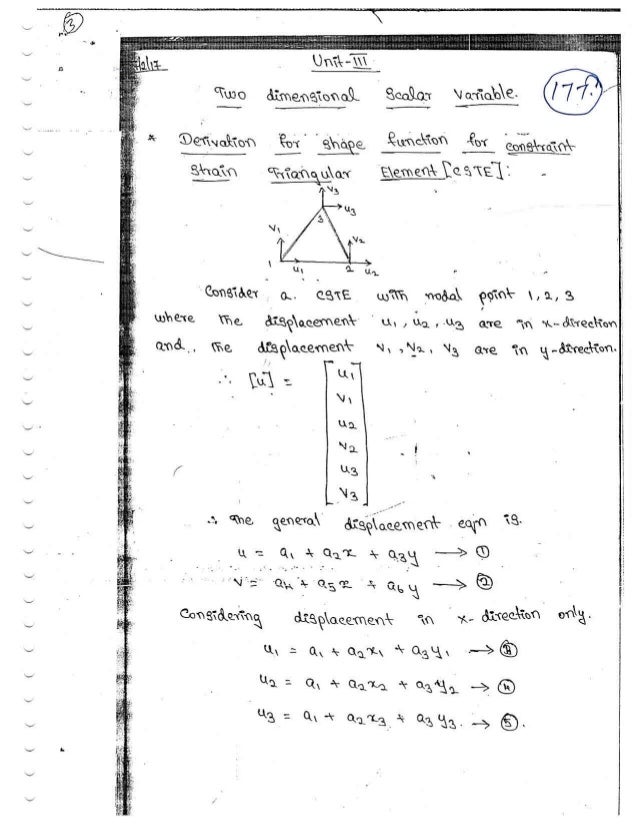 3
Unit-III
Two dimensional Scalar Variable.
177
* Derivation for shape function for constraint
Strain Triangular Element [CSTE]:-
v3
u3
3
v1
v2
1 u1 2 u2
Consider a CSTE with nodal point 1, 2, 3
where the displacement u1, u2, u3 are in x-direction
and, the displacement v1, v2, v3 are in y-direction.
∴ [u] =
u1
v1
u2
v2
u3
v3
∴ The general displacement eqn is.
u = a1 + a2x + a3y → ①
v = a4 + a5x + a6y → ②
Considering displacement in x-direction only.
u1 = a1 + a2x1 + a3y1 → ③
u2 = a1 + a2x2 + a3y2 → ④
u3 = a1 + a2x3 + a3y3. → ⑤.